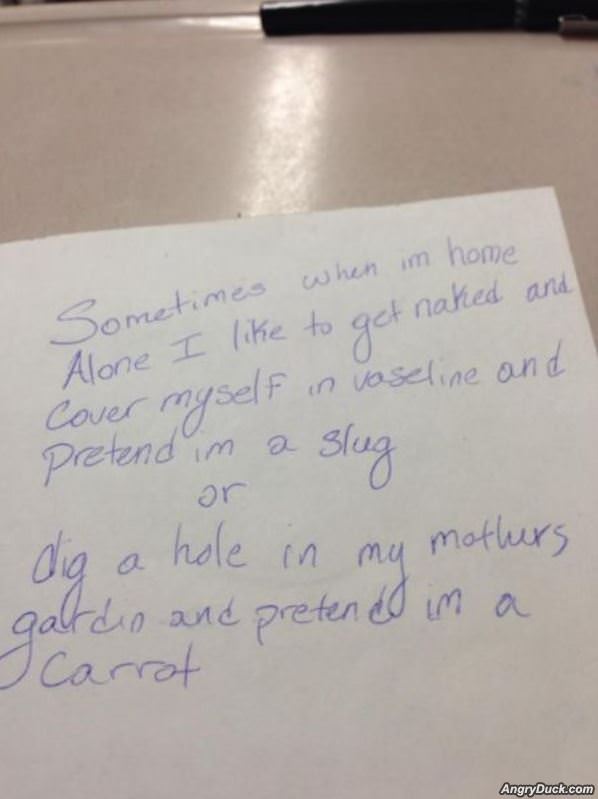 Sometimes when im home
Alone I like to get naked and
Cover myself in vaseline and
Pretend im a slug
or
dig a hole in my mothers
gardin and pretend im a
Carrot
AngryDuck.com